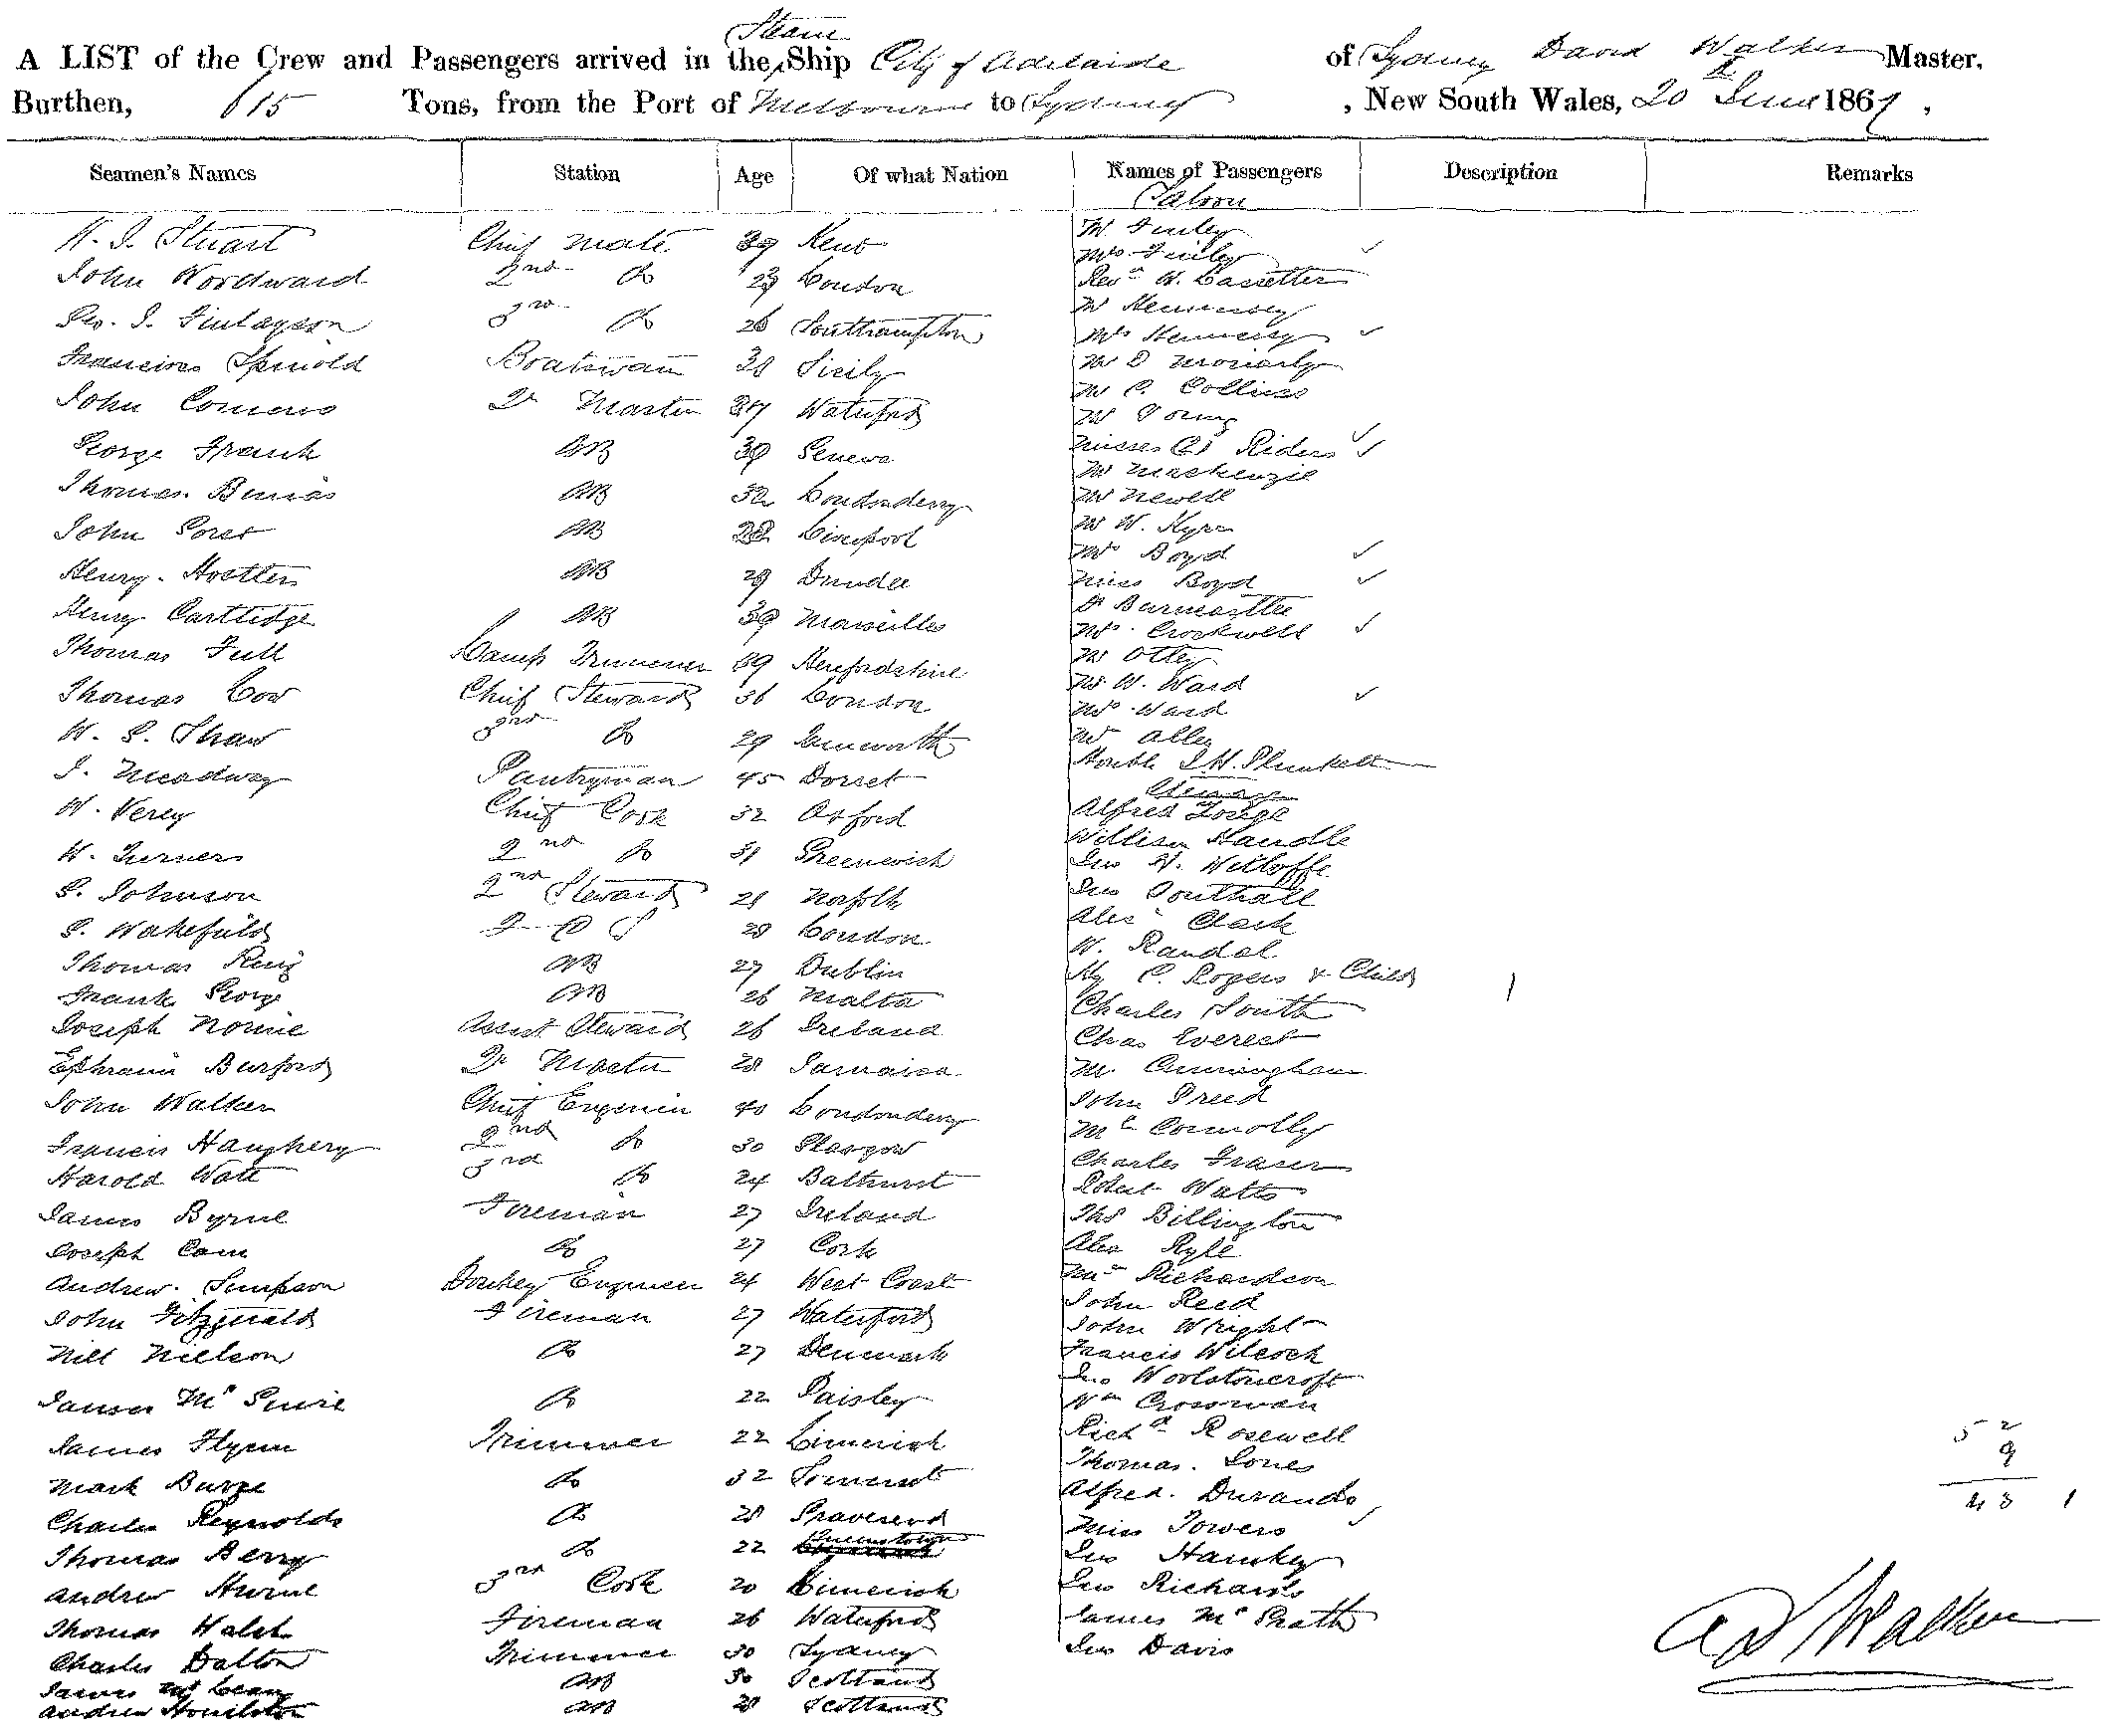 Steam
A LIST of the Crew and Passengers arrived in the Ship City of Adelaide of Sydney David Walker Master,
Burthen, 615 Tons, from the Port of Melbourne to Sydney , New South Wales, 20 June 1867 ,
Seamen's Names Station Age Of what Nation Names of Passengers Description Remarks
Saloon
Stuart Chief Mate 39 Kent
Mr Finley
Mrs Finley
John Wordward 2nd Do 23 London
Revd W.
Mr Hennessy
Geo. Finlayson 3rd Do 26 Southampton
Mrs Hennessy
Boatswain Sicily
Mr D Moriarty
Mr C. Collins
John Qr Master Waterford
Mr Young
George Frank AB Geneva
Misses (2) Riders
Mr Mackenzie
Thomas AB 32 Londonderry
Mr Newell
John AB Liverpool
Mr W.
Mrs Boyd
Henry AB 29 Dundee
Miss Boyd
Dr
Henry Carttidge AB 39 Marseilles
Mrs Crockwell
Thomas Lamp Trimmer Herefordshire
Mr Otley
Mr W. Ward
Thomas Cow Chief Steward 36 London
Mrs Ward
W. Shaw 3rd Do 29
Mr
Honble J.H. Plunkett
J. Meadway Pantryman 45 Dorset
Steerage
W. Verey Chief Cook 32 Oxford
Alfred
William Handle
W. Turner 2nd Do 31 Greenwich
Jno
S. Johnson 2nd Steward Norfolk
Jno Southall
Alexr Clark
Wakefield London
W. Randal
Thomas King AB 27 Dublin
C. Rogers & Child 1
Frank George AB 26 Malta
Charles South
Joseph Assist Steward 26 Ireland
Chas Everest
Ephraim Burford Qr Master 28 Jamaica
Mr Cunningham
John Walker Chief Engineer 40 Londonderry
John Freed
Francis Haughery 2nd Do 30 Glasgow
Mc Connolly
Harold Watt 3rd Do 24 Bathurst
Charles Fraser
Robert Watts
James Byrne Fireman 27 Ireland
Thos Billington
Joseph Cain Do 27 Cork
Alex Kyle
Andrew Simpson Donkey Engineer 24 West Coast
Richardson
John Fitzgerald Fireman 27 Waterford
John Reed
John Wright
Nils Nielson Do 27 Denmark
Francis Wilcock
James McGuire Do 22 Paisley
Jno Woolstoncroft
Wm Crossman
James Flynn Trimmer 22 Limerick
Richd Rosewell 52
Thomas Jones 9
Mark Burge Do 32 Somerset
Alfred 43 1
Charles Reynolds Do 28 Gravesend
Miss Towers
Thomas Berry Do 22 Queenstown
Jno
Andrew Hurne 3rd Cook 20 Limerick
Jno Richards
Thomas Walsh Fireman 26 Waterford
James McGrath
Charles Dalton Trimmer 30 Sydney
Jno Davis
James McLean AB 30 Scotland
Andrew AB 28 Scotland
Walker